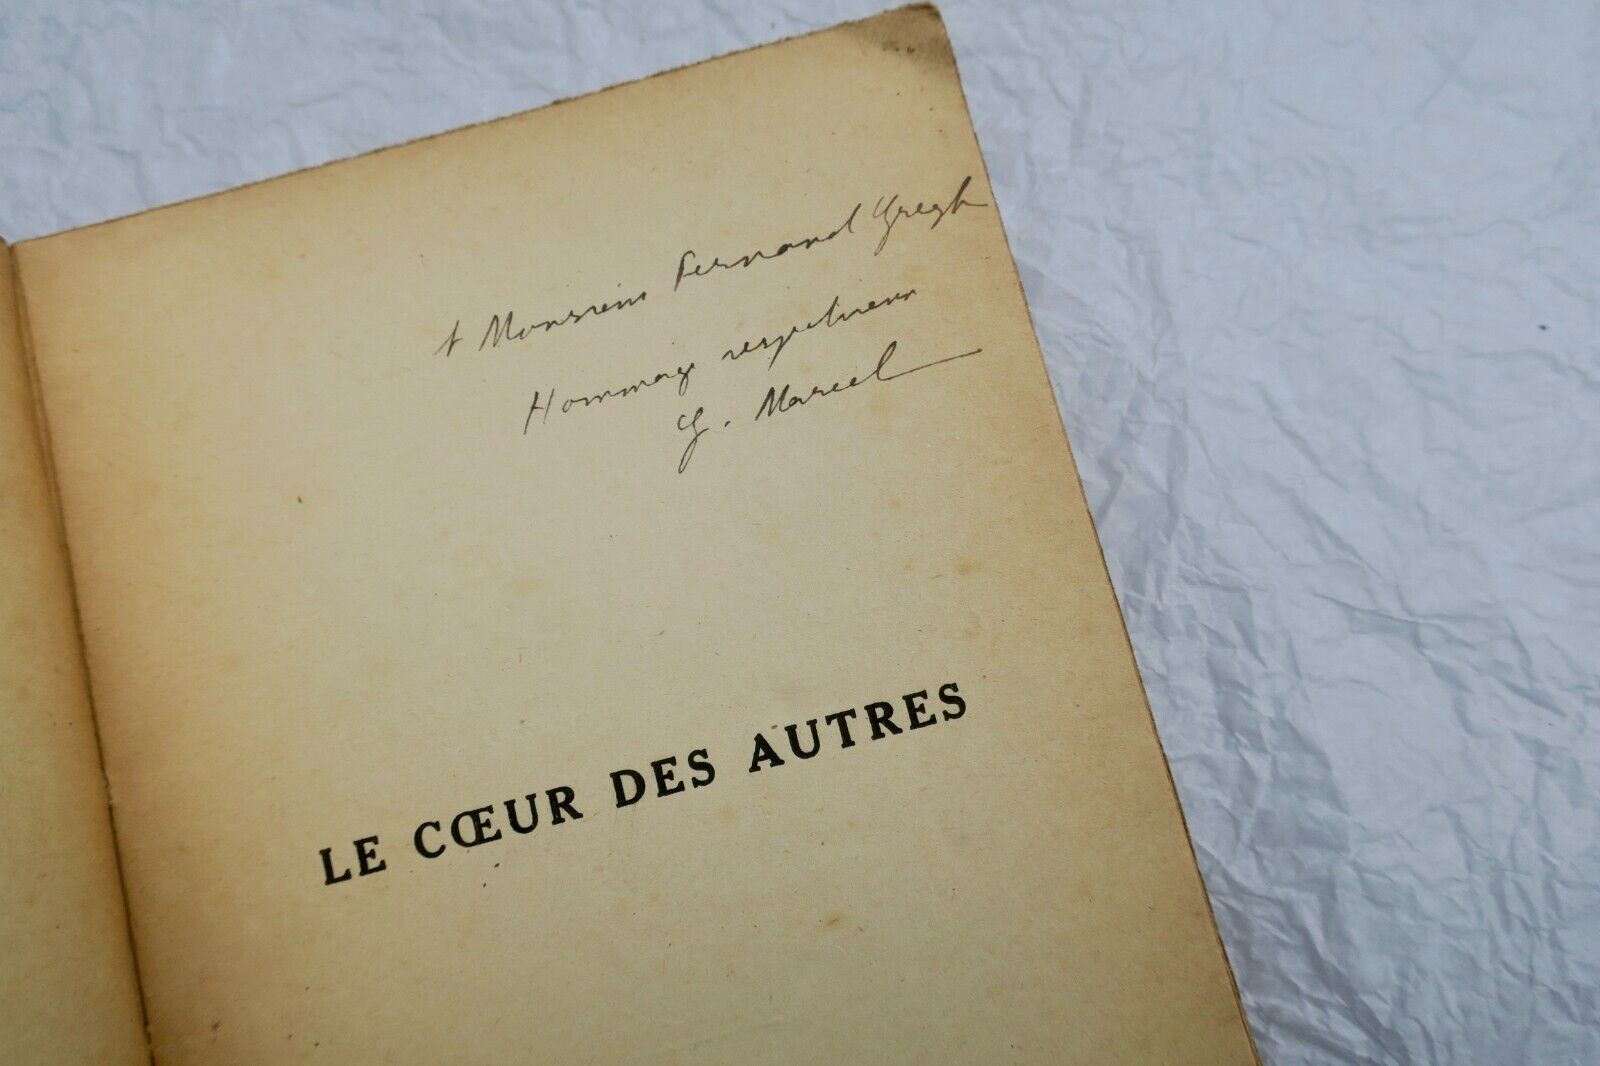 A Monsieur Fernand Gregh
Hommage respectueux
G. Marcel
LE CŒUR DES AUTRES